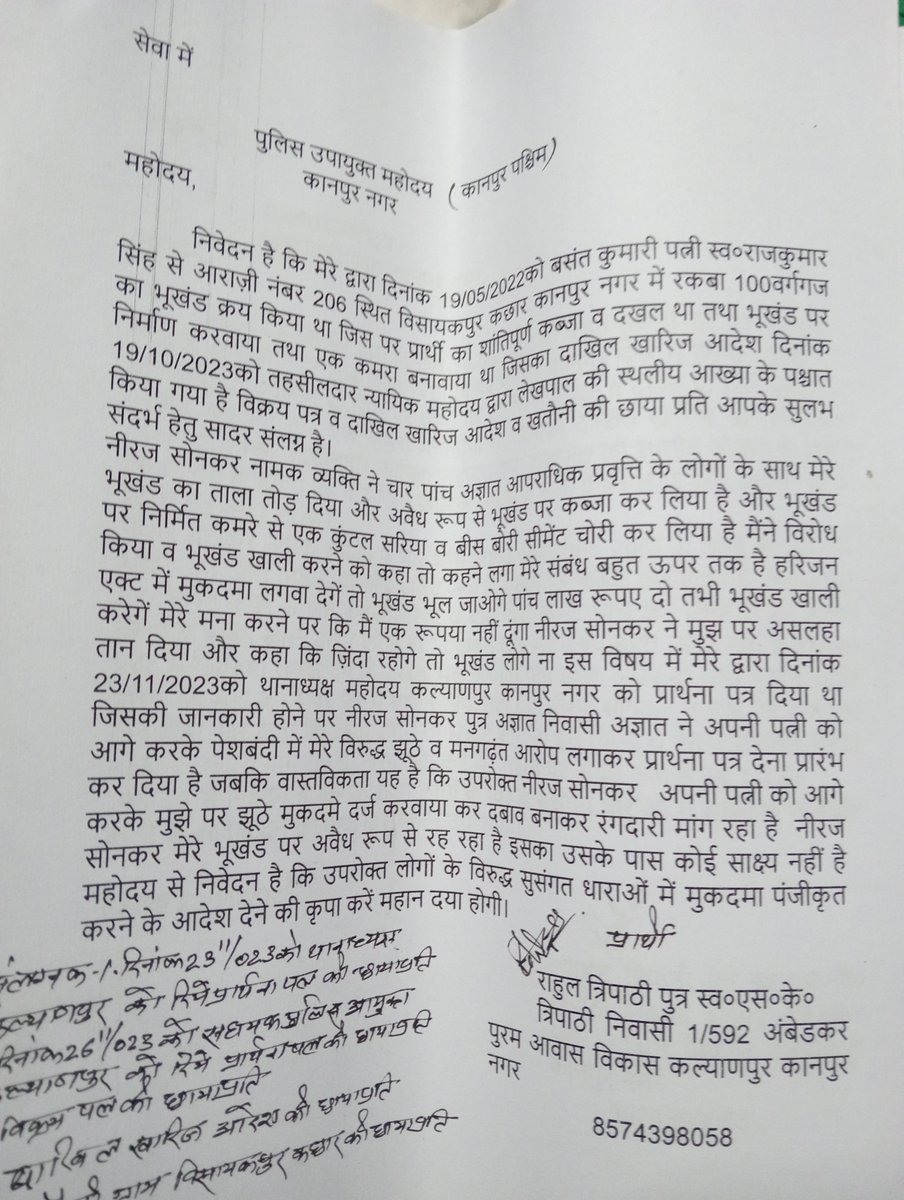 सेवा में
पुलिस उपायुक्त महोदय (कानपुर पश्चिम)
कानपुर नगर
महोदय,
निवेदन है कि मेरे द्वारा दिनांक 19/05/2022को बसंत कुमारी पत्नी स्व०राजकुमार
सिंह से आराज़ी नंबर 206 स्थित विसायकपुर कछार कानपुर नगर में रकबा 100वर्गगज
का भूखंड क्रय किया था जिस पर प्रार्थी का शांतिपूर्ण कब्जा व दखल था तथा भूखंड पर
निर्माण करवाया तथा एक कमरा बनवाया था जिसका दाखिल खारिज आदेश दिनांक
19/10/2023को तहसीलदार न्यायिक महोदय द्वारा लेखपाल की स्थलीय आख्या के पश्चात
किया गया है विक्रय पत्र व दाखिल खारिज आदेश व खतौनी की छाया प्रति आपके सुलभ
संदर्भ हेतु सादर संलग्न है।
नीरज सोनकर नामक व्यक्ति ने चार पांच अज्ञात आपराधिक प्रवृत्ति के लोगों के साथ मेरे
भूखंड का ताला तोड़ दिया और अवैध रूप से भूखंड पर कब्जा कर लिया है और भूखंड
पर निर्मित कमरे से एक कुंटल सरिया व बीस बोरी सीमेंट चोरी कर लिया है मैंने विरोध
किया व भूखंड खाली करने को कहा तो कहने लगा मेरे संबंध बहुत ऊपर तक है हरिजन
एक्ट में मुकदमा लगवा देगें तो भूखंड भूल जाओगे पांच लाख रूपए दो तभी भूखंड खाली
करेगें मेरे मना करने पर कि मैं एक रूपया नहीं दूंगा नीरज सोनकर ने मुझ पर असलहा
तान दिया और कहा कि ज़िंदा रहोगे तो भूखंड लोगे ना इस विषय में मेरे द्वारा दिनांक
23/11/2023को थानाध्यक्ष महोदय कल्याणपुर कानपुर नगर को प्रार्थना पत्र दिया था
जिसकी जानकारी होने पर नीरज सोनकर पुत्र अज्ञात निवासी अज्ञात ने अपनी पत्नी को
आगे करके पेशबंदी में मेरे विरुद्ध झूठे व मनगढ़ंत आरोप लगाकर प्रार्थना पत्र देना प्रारंभ
कर दिया है जबकि वास्तविकता यह है कि उपरोक्त नीरज सोनकर अपनी पत्नी को आगे
करके मुझे पर झूठे मुकदमे दर्ज करवाया कर दबाव बनाकर रंगदारी मांग रहा है नीरज
सोनकर मेरे भूखंड पर अवैध रूप से रह रहा है इसका उसके पास कोई साक्ष्य नहीं है
महोदय से निवेदन है कि उपरोक्त लोगों के विरुद्ध सुसंगत धाराओं में मुकदमा पंजीकृत
करने के आदेश देने की कृपा करें महान दया होगी।
प्रार्थी
राहुल त्रिपाठी पुत्र स्व०एस०के०
त्रिपाठी निवासी 1/592 अंबेडकर
पुरम आवास विकास कल्याणपुर कानपुर
नगर
8574398058
दिनांक 23/11/023 को थानाध्यक्ष
को दिये प्रार्थना पत्र की छायाप्रति
दिनांक 26/11/023 को सहायक पुलिस आयुक्त
को दिये प्रार्थना पत्र की छायाप्रति
विक्रय पत्र की छायाप्रति
दाखिल खारिज आदेश की छायाप्रति
ग्राम विसायकपुर कछार की छायाप्रति